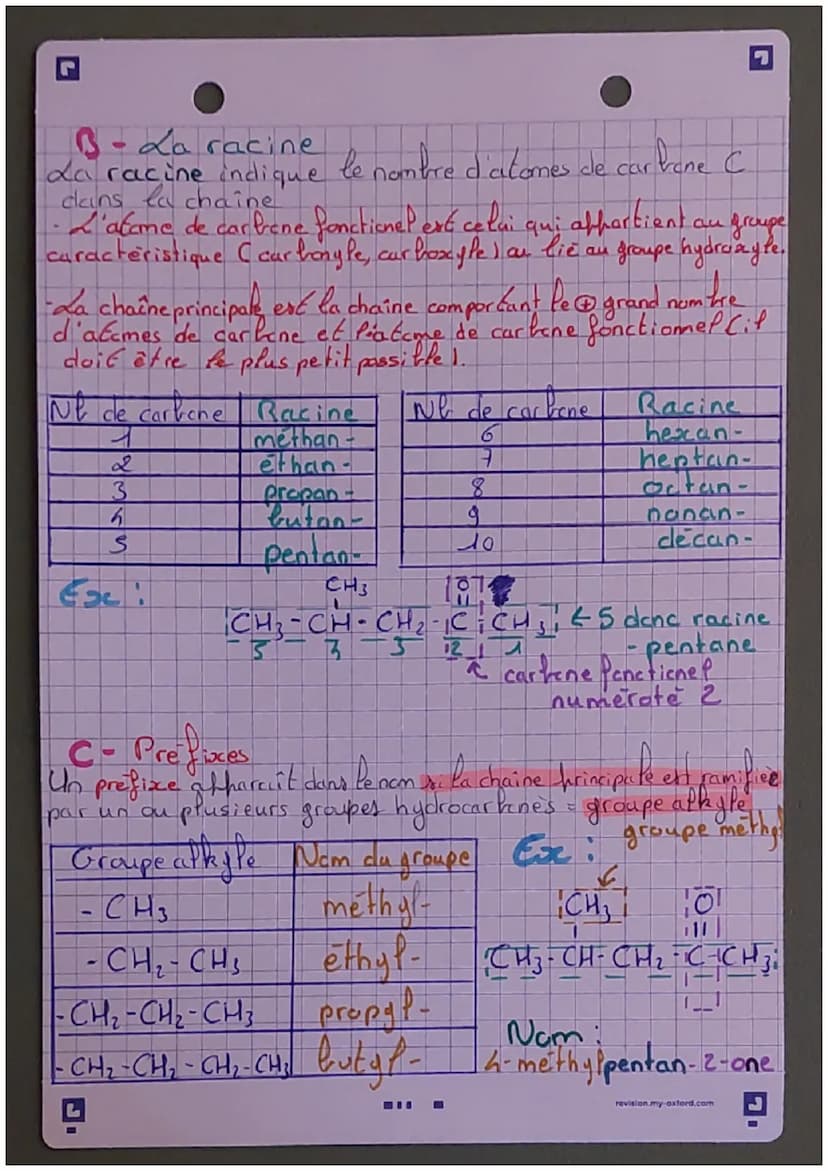 B - La racine
La racine indique le nombre d'atomes de carbone C
dans la chaîne
- L'atome de carbone fonctionel est celui qui appartient au groupe
caractéristique (carbonyle, carboxyle) ou lié au groupe hydroxyle.
- La chaîne principale est la chaîne comportant le ⊕ grand nombre
d'atomes de carbone et l'atome de carbone fonctionnel (il
doit être le plus petit possible).
Nb de carbone | Racine | Nb de carbone | Racine
1 | méthan- | 6 | hexan-
2 | éthan- | 7 | heptan-
3 | propan- | 8 | octan-
4 | butan- | 9 | nonan-
5 | pentan- | 10 | décan-
Ex :
CH3 O
CH3 - CH - CH2 - C - CH3 ← 5 donc racine
5 3 3 2 1 - pentane
↑ carbone fonctionel
numéroté 2
C - Préfixes
Un préfixe apparaît dans le nom si la chaîne principale est ramifiée
par un ou plusieurs groupes hydrocarbonés = groupe alkyle
groupe méthyl
Groupe alkyle | Nom du groupe
- CH3 | méthyl-
- CH2 - CH3 | éthyl-
- CH2 - CH2 - CH3 | propyl-
- CH2 - CH2 - CH2 - CH3 | butyl-
Ex :
CH3 O
CH3 - CH - CH2 - C - CH3
Nom :
4-méthylpentan-2-one
revision.my-oxford.com